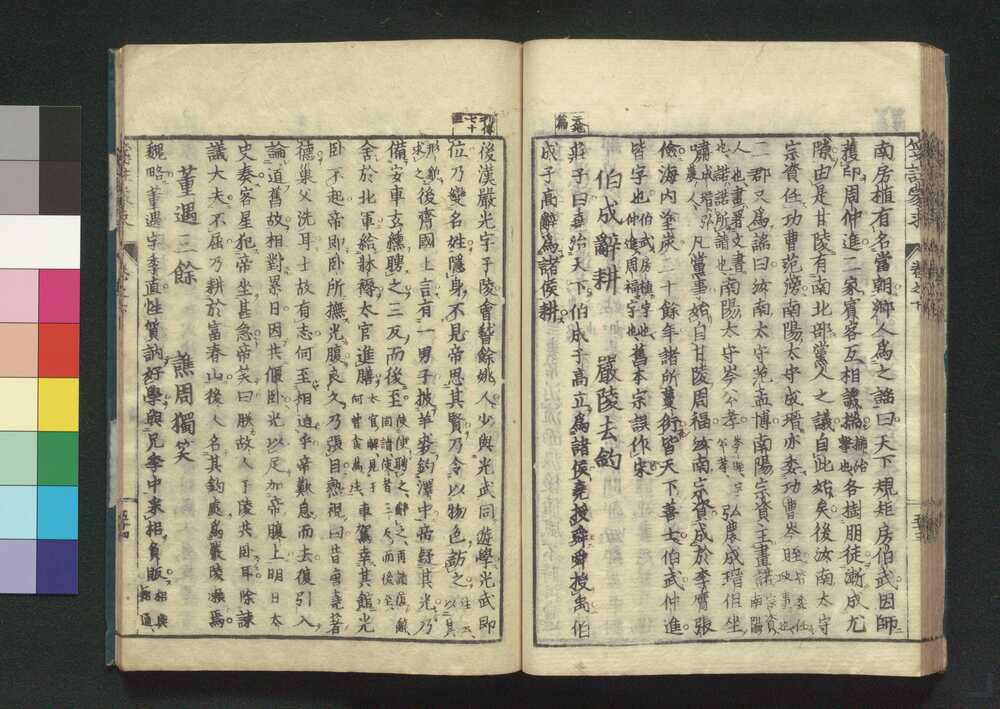 南房植有名當朝鄉人爲之謠曰天下規矩房伯武因師
獲印周仲進二家賓客互相譏揣各樹朋徒漸成尤
隙由是甘陵有南北部黨人之議自此始矣後汝南太守
宗資任功曹范滂南陽太守成瑨亦委功曹岑晊
二郡又爲謠曰汝南太守范孟博南陽宗資主畫諾
南陽太守岑公孝弘農成瑨但坐
嘯凡黨事始自甘陵周福汝南宗資成於李膺張
儉海内塗炭二十餘年諸所蔓衍皆天下善士伯武仲進
皆字也舊本宗誤作宋
伯成辭耕 嚴陵去釣
莊子曰堯治天下伯成子高立爲諸侯堯授舜舜授禹伯
成子高辭爲諸侯耕
後漢嚴光字子陵會稽餘姚人少與光武同遊學光武即
位乃變名姓隱身不見帝思其賢乃令以物色訪之
後齊國上言有一男子披羊裘釣澤中帝疑其光乃
備安車玄纁聘之三反而後至
舍於北軍給牀褥太官進膳車駕幸其館光
臥不起帝即臥所撫光腹良久乃張目熟視曰昔唐堯著
德巢父洗耳士故有志何至相迫乎帝歎息而去復引入
論道舊故相對累日因共偃臥光以足加帝腹上明日太
史奏客星犯帝坐甚急帝笑曰朕故人子陵共臥耳除諫
議大夫不屈乃耕於富春山後人名其釣處爲嚴陵瀬焉
董遇三餘 譙周獨笑
魏略董遇字季直性質訥好學與兄季中采相負販